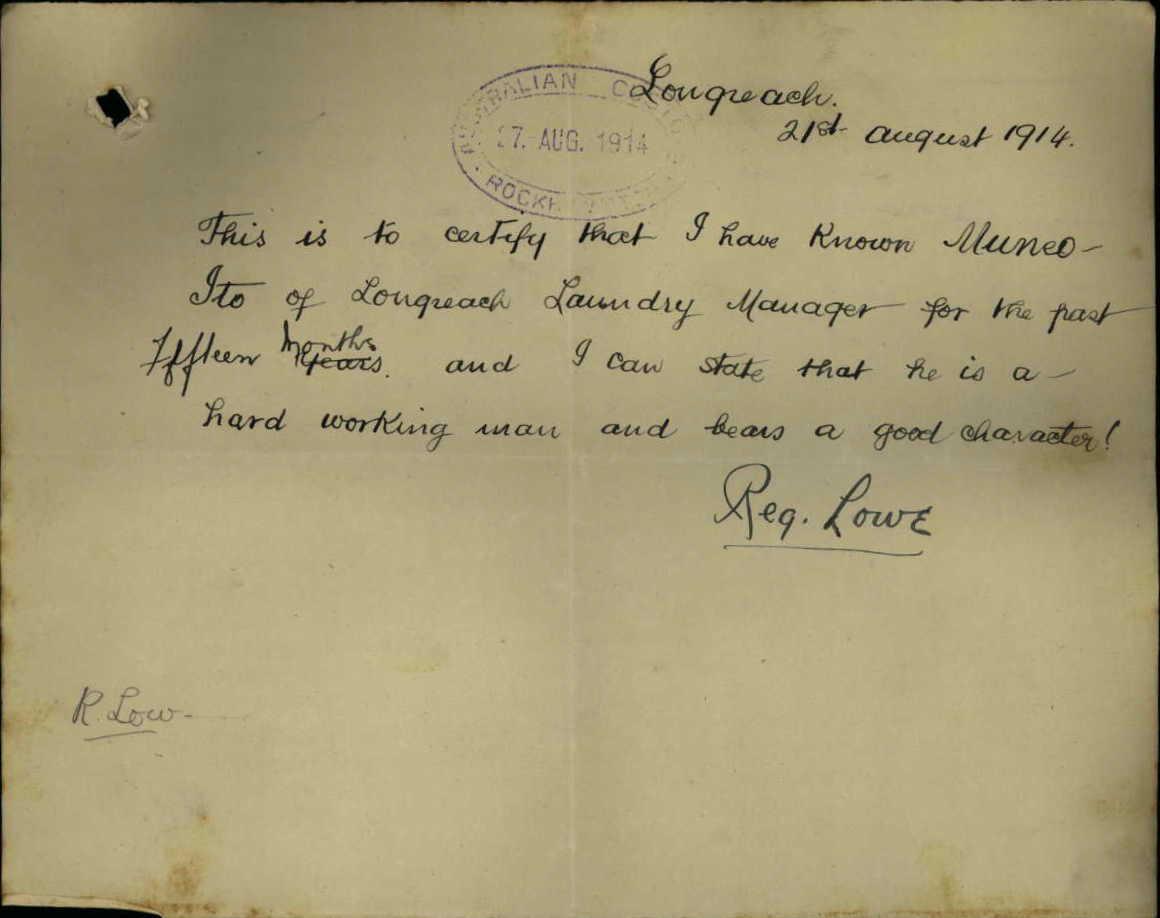 Longreach.
AUSTRALIAN CUSTOMS
27. AUG. 1914
ROCKHAMPTON
21st August 1914.
This is to certify that I have known Muneo-
Ito of Longreach Laundry Manager for the past
Fifteen months years. and I can state that he is a-
hard working man and bears a good character!
Reg. Lowe
R. Low-